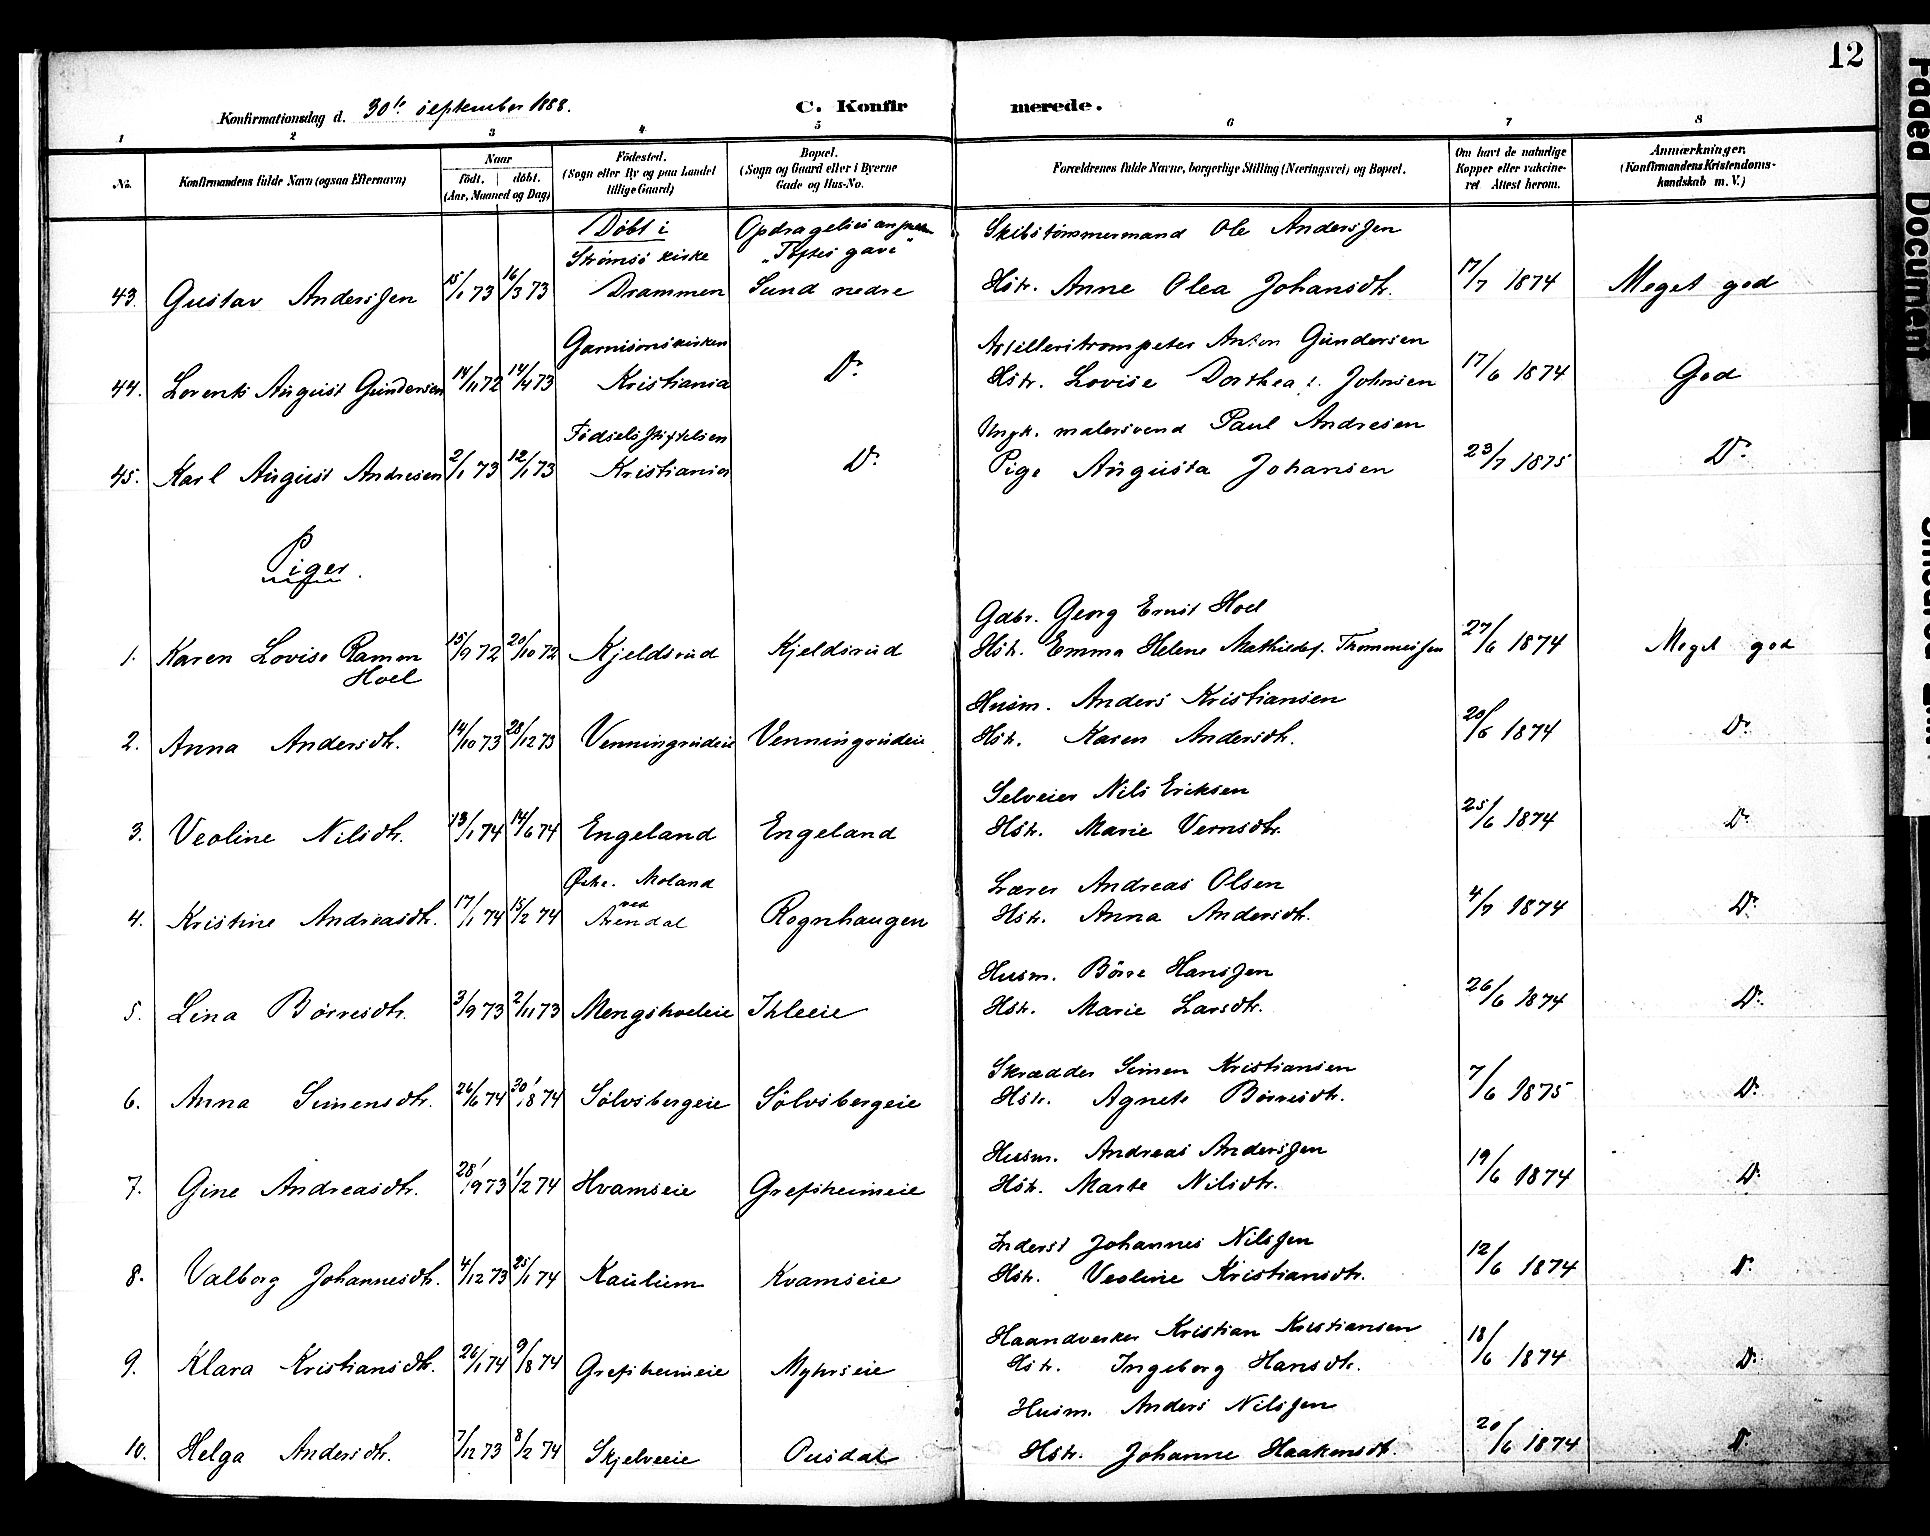 12
Konfirmationsdag d. 30te september 1888.
C. Konfirmerede.
1 2 3 4 5 6 7 8
No.
Konfirmandens fulde Navn (ogsaa Efternavn)
Naar
født. døbt.
(Aar, Maaned og Dag)
Fødested.
(Sogn eller By og paa Landet
tillige Gaard)
Bopæl.
(Sogn og Gaard eller i Byerne
Gade og Hus-No.
Forældrenes fulde Navne, borgerlige Stilling (Næringsvei) og Bopæl.
Om havt de naturlige
Kopper eller vakcine-
ret Attest herom.
Anmærkninger.
(Konfirmandens Kristendoms-
kundskab m. V.)
Døbt i Opdragelses Skibstømmermand Ole Anderssen
Strømsø kirke "Toftes gave"
43. Gustav Anderssen 15/1 73 16/3 73 Drammen Sund nedre Hstr. Anne Olea Johansdtr. 17/7 1874 Meget god
Garnisonskirken Artilleritrompeter Anton Gundersen
44. Lorents August Gundersen 14/11 72 14/4 73 Kristiania Do. Hstr. Lovise Dorthea Johnsen 17/6 1874 God
Fødselsstiftelsen Ungk. malersvend Paul Andresen
45. Karl August Andresen 2/1 73 12/1 73 Kristiania Do. Pige Augusta Johansen 23/7 1875 Do.
Piger.
Gdbr. Georg Ernst Hoel
1. Karen Lovise Ramm 15/9 72 20/10 72 Kjeldsrud Kjeldsrud Hstr. Emma Helene Mathilde f. Thommessen 27/6 1874 Meget god
Hoel
Husm. Anders Kristiansen
2. Anna Andersdtr. 14/10 73 28/12 73 Venningrudeie Venningrudeie Hstr. Karen Andersdtr. 20/6 1874 Do.
Selveier Nils Ericksen
3. Veoline Nilsdtr. 13/1 74 14/6 74 Engeland Engeland Hstr. Marie Vernsdtr. 25/6 1874 Do.
Østre Moland Lærer Andreas Olsen
ved
4. Kristine Andreasdtr. 17/1 74 15/2 74 Arendal Rognhaugen Hstr. Anna Andersdtr. 4/7 1874 Do.
Husm. Børre Hanssen
5. Lina Børresdtr. 3/9 73 2/11 73 Mengshoeleie Ihleeie Hstr. Marie Larsdtr. 26/6 1874 Do.
Skrædder Simen Kristiansen
6. Anna Simensdtr. 26/6 74 30/8 74 Sølvsbergeie Sølvsbergeie Hstr. Agnete Børresdtr. 7/6 1875 Do.
Husm. Andreas Anderssen
7. Gine Andreasdtr. 28/9 73 1/2 74 Hvamseie Grefsheimeie Hstr. Marte Nilsdtr. 19/6 1874 Do.
Inderst Johannes Nilssen
8. Valborg Johannesdtr. 4/12 73 25/1 74 Kaulum Kvamseie Hstr. Veoline Kristiansdtr. 12/6 1874 Do.
Haandverker Kristian Kristiansen
9. Klara Kristiansdtr. 26/1 74 9/8 74 Grefsheimeie Myhrseie Hstr. Ingeborg Hansdtr. 18/6 1874 Do.
Husm. Anders Nilssen
10. Helga Andersdtr. 7/12 73 8/2 74 Skjelveeie Ousdal Hstr. Johanne Haakensdt. 20/6 1874 Do.
Faded Document